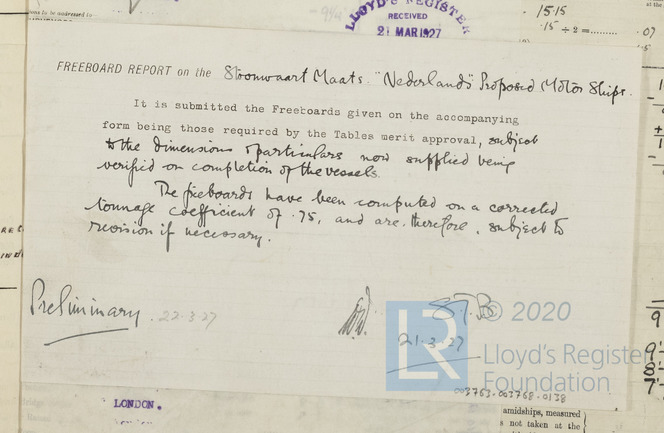 ions to be addressed to
LLOYD'S REGISTER
RECEIVED
21 MAR 1927
15.15
.15 ÷ 2 = .........
.07
FREEBOARD REPORT on the Stoomvaart Maats. "Nederlands" Proposed Motor Ships.
It is submitted the Freeboards given on the accompanying
form being those required by the Tables merit approval, subject
to the dimensions & particulars now supplied being
verified on completion of the vessels.
The freeboards have been computed on a corrected
tonnage coefficient of .75, and are, therefore, subject to
revision if necessary.
Preliminary 22-3-27
S.T.B
21.3.27
LR © 2020
Lloyd's Register
Foundation
003763-003768-0138
LONDON.
amidships, measured
s not taken at the